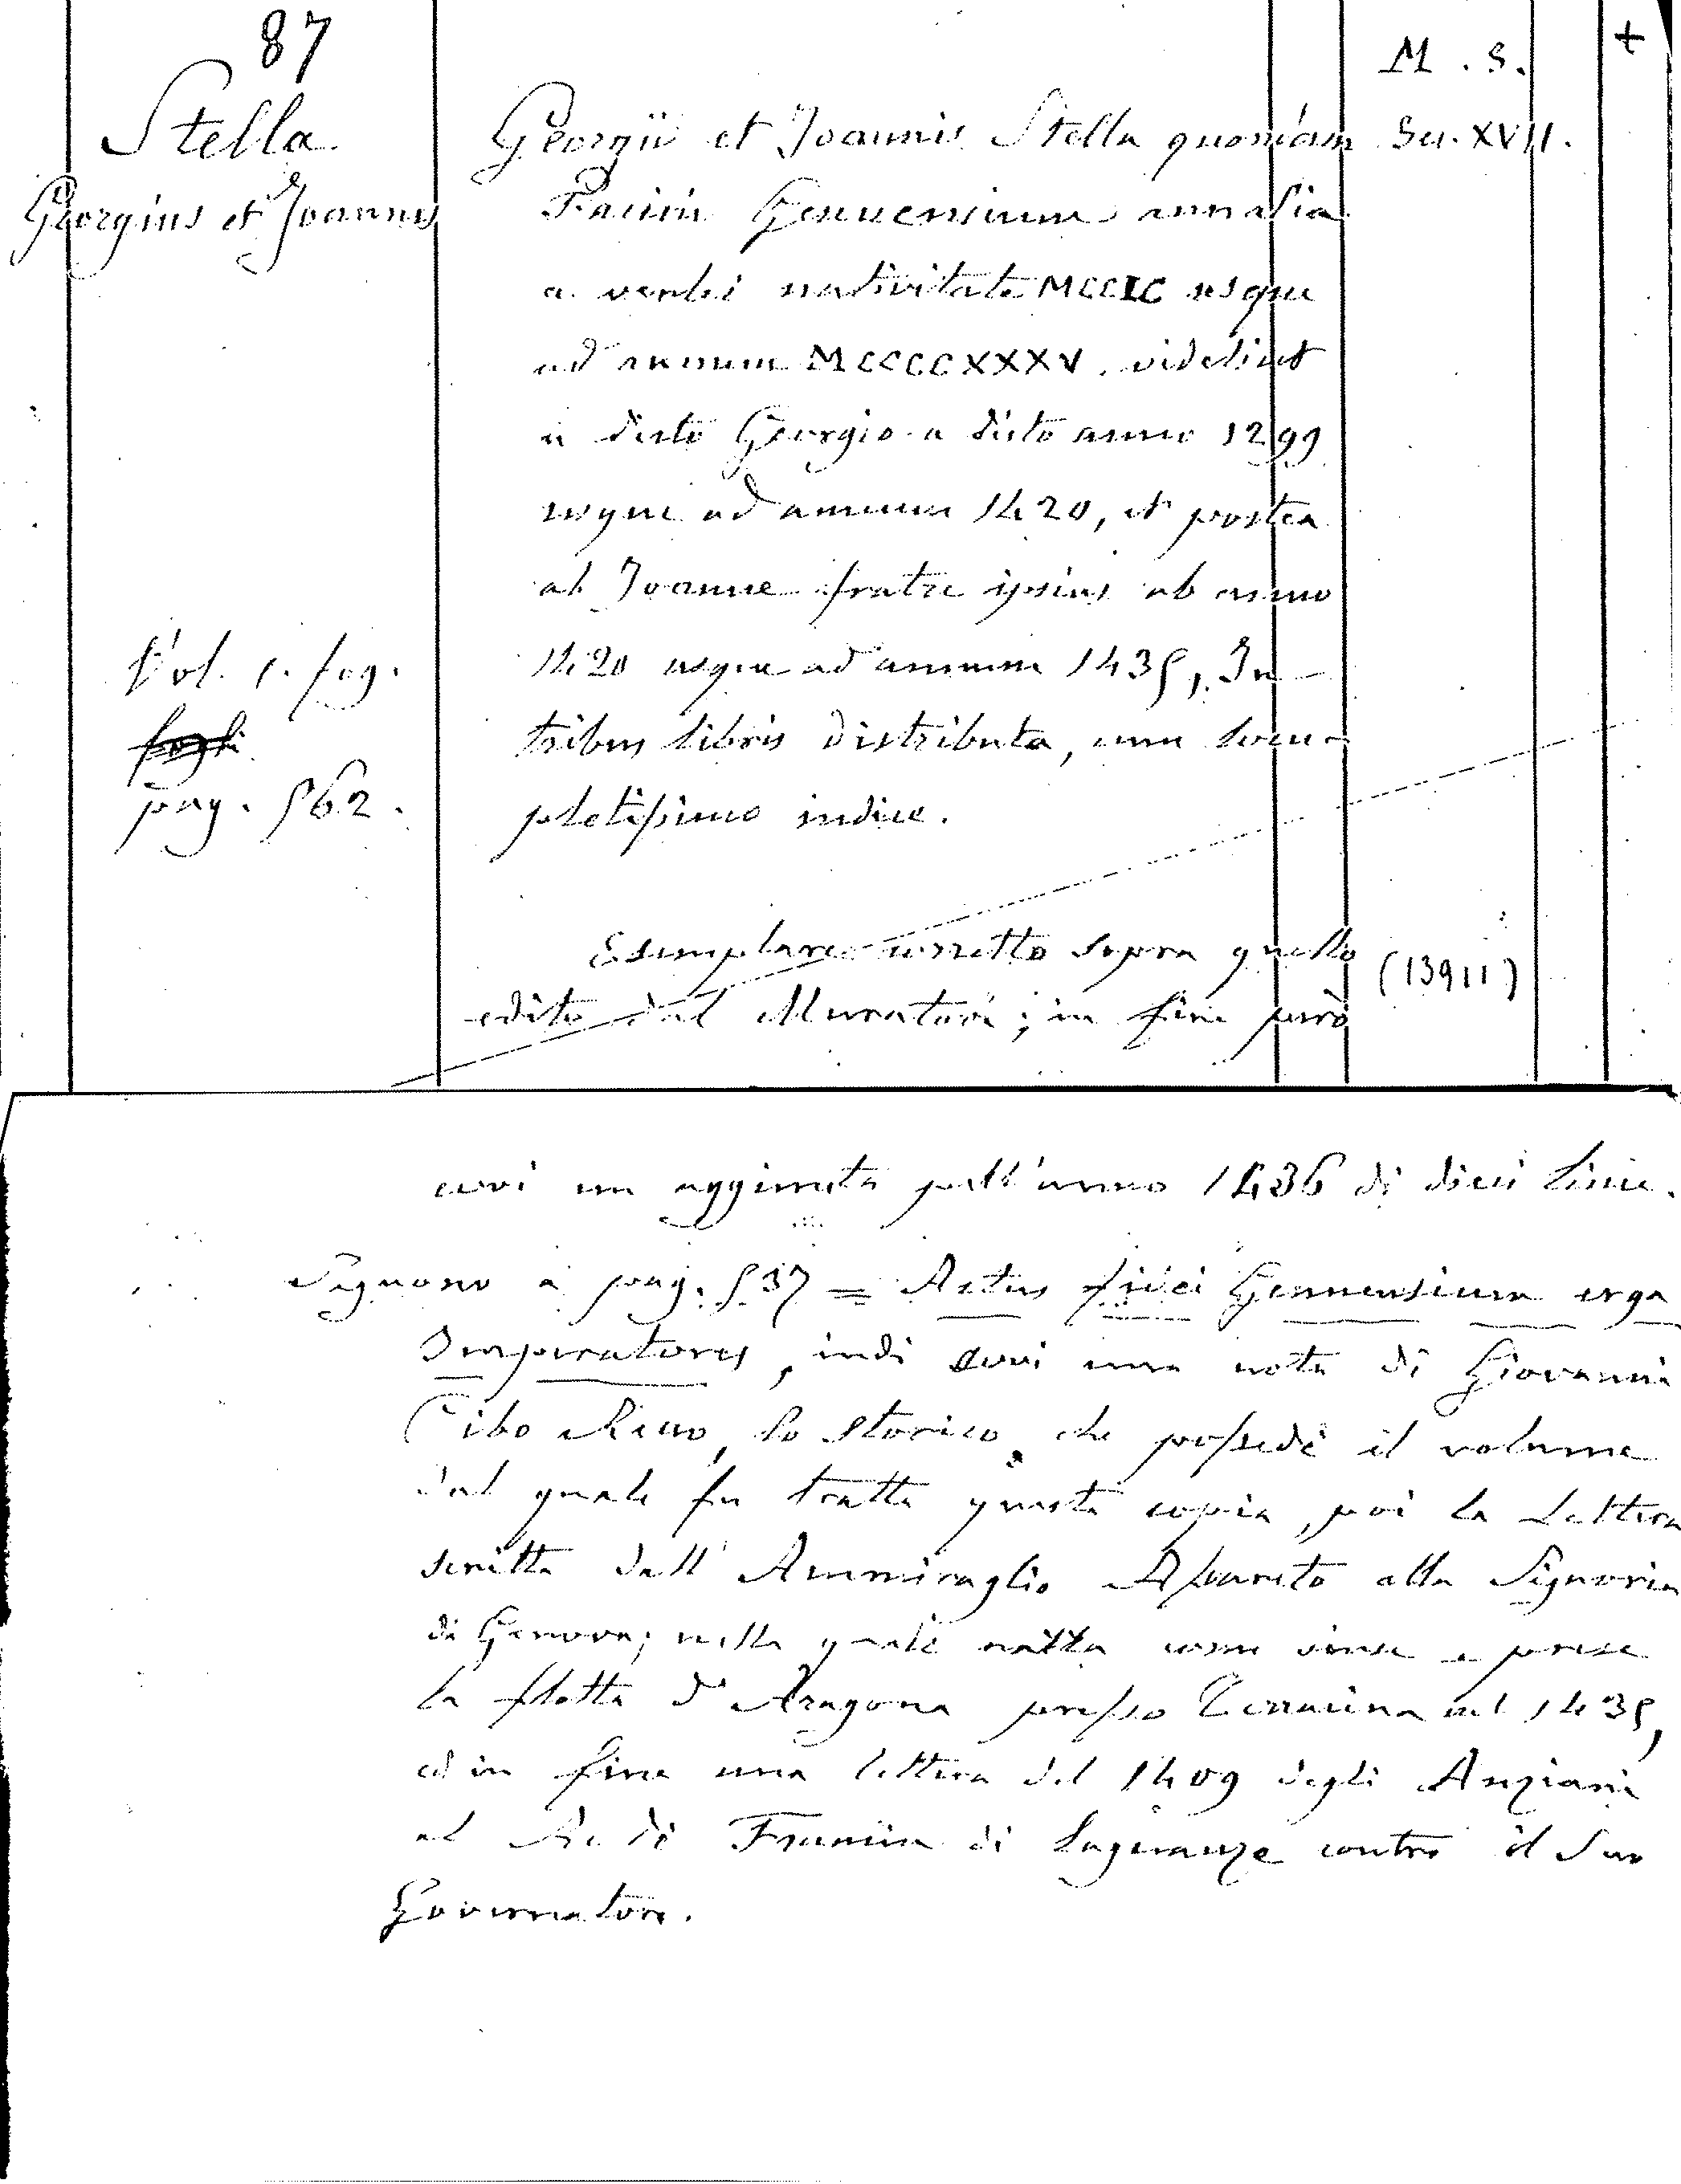 87
M. S.
+
Stella
Georgius et Joannes
Georgii et Joannis Stella quondam
Sec. XVII.
Facini Genuensium annalia
a verbi nativitate MCCIC usque
ad annum MCCCCXXXV. videlicet
a dicto Georgio a dicto anno 1299
usque ad annum 1420, et postea
ab Joanne fratre ipsius ab anno
1420 usque ad annum 1435, In
tribus libris distributa, cum locu-
pletissimo indice.
Vol. 1. fog.
pag. 562.
Esemplare corretto sopra quello
edito dal Muratori; in fine però
(13911)
avvi un aggiunta pell'anno 1436 di dieci linie.
Seguono a pag. 537 = Actus fidei Genuensium erga
Imperatores, indi avvi una nota di Giovanni
Cibo Recco, lo storico, che possedè il volume
dal quale fu tratta questa copia, poi la Lettera
scritta dall'Ammiraglio Assereto alla Signoria
di Genova; nella quale narra come vinse e prese
la flotta d'Aragona presso Terracina nel 1435,
ed in fine una lettera del 1409 degli Anziani
al Re di Francia di lagnanze contro il suo
Governatore.